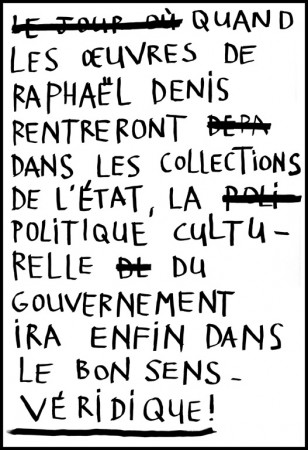 LE JOUR OÙ QUAND
LES ŒUVRES DE
RAPHAËL DENIS
RENTRERONT DEPA
DANS LES COLLECTIONS
DE L'ÉTAT, LA POLI
POLITIQUE CULTU-
RELLE DE DU
GOUVERNEMENT
IRA ENFIN DANS
LE BON SENS-
VÉRIDIQUE!